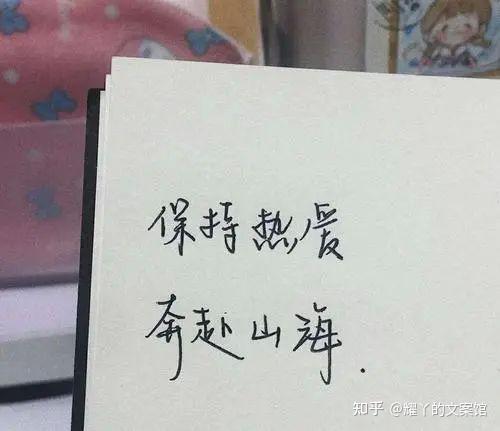 保持热爱
奔赴山海.
知乎 @耀丫的文案馆